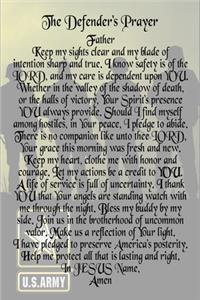 The Defender's Prayer
Father
Keep my sights clear and my blade of
intention sharp and true, I know safety is of the
LORD, and my care is dependent upon YOU.
Whether in the valley of the shadow of death,
or the halls of victory, Your Spirit's presence
YOU always provide. Should I find myself
among hostiles, in Your peace, I pledge to abide,
There is no companion like unto thee LORD,
Your grace this morning was fresh and new,
Keep my heart, clothe me with honor and
courage, Let my actions be a credit to YOU.
A life of service is full of uncertainty, I thank
YOU that Your angels are standing watch with
me through the night, Bless my buddy by my
side, Join us in the brotherhood of uncommon
valor, Make us a reflection of Your light,
I have pledged to preserve America's posterity,
Help me protect all that is lasting and right,
In JESUS Name,
Amen
U.S.ARMY